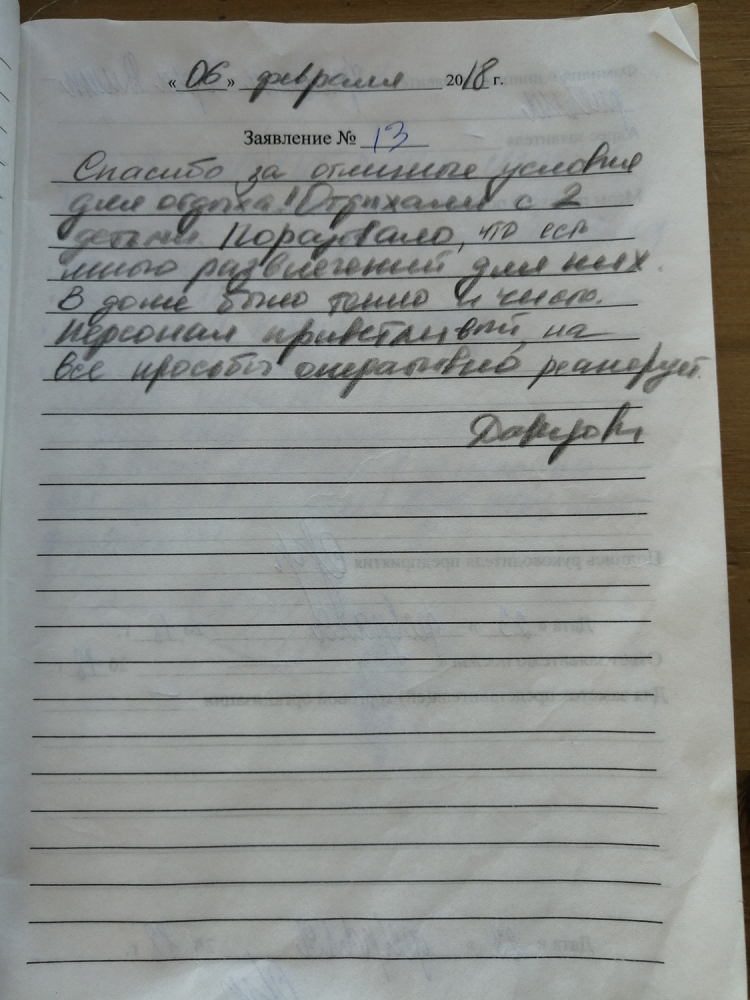 « 06 » февраля 2018 г.
Заявление № 13
Спасибо за отличные условия
для отдыха! Отдыхали с 2
детьми. Порадовало, что есть
много развлечений для них.
В доме было тепло и чисто.
Персонал приветливый, на
все просьбы оперативно реагирует.